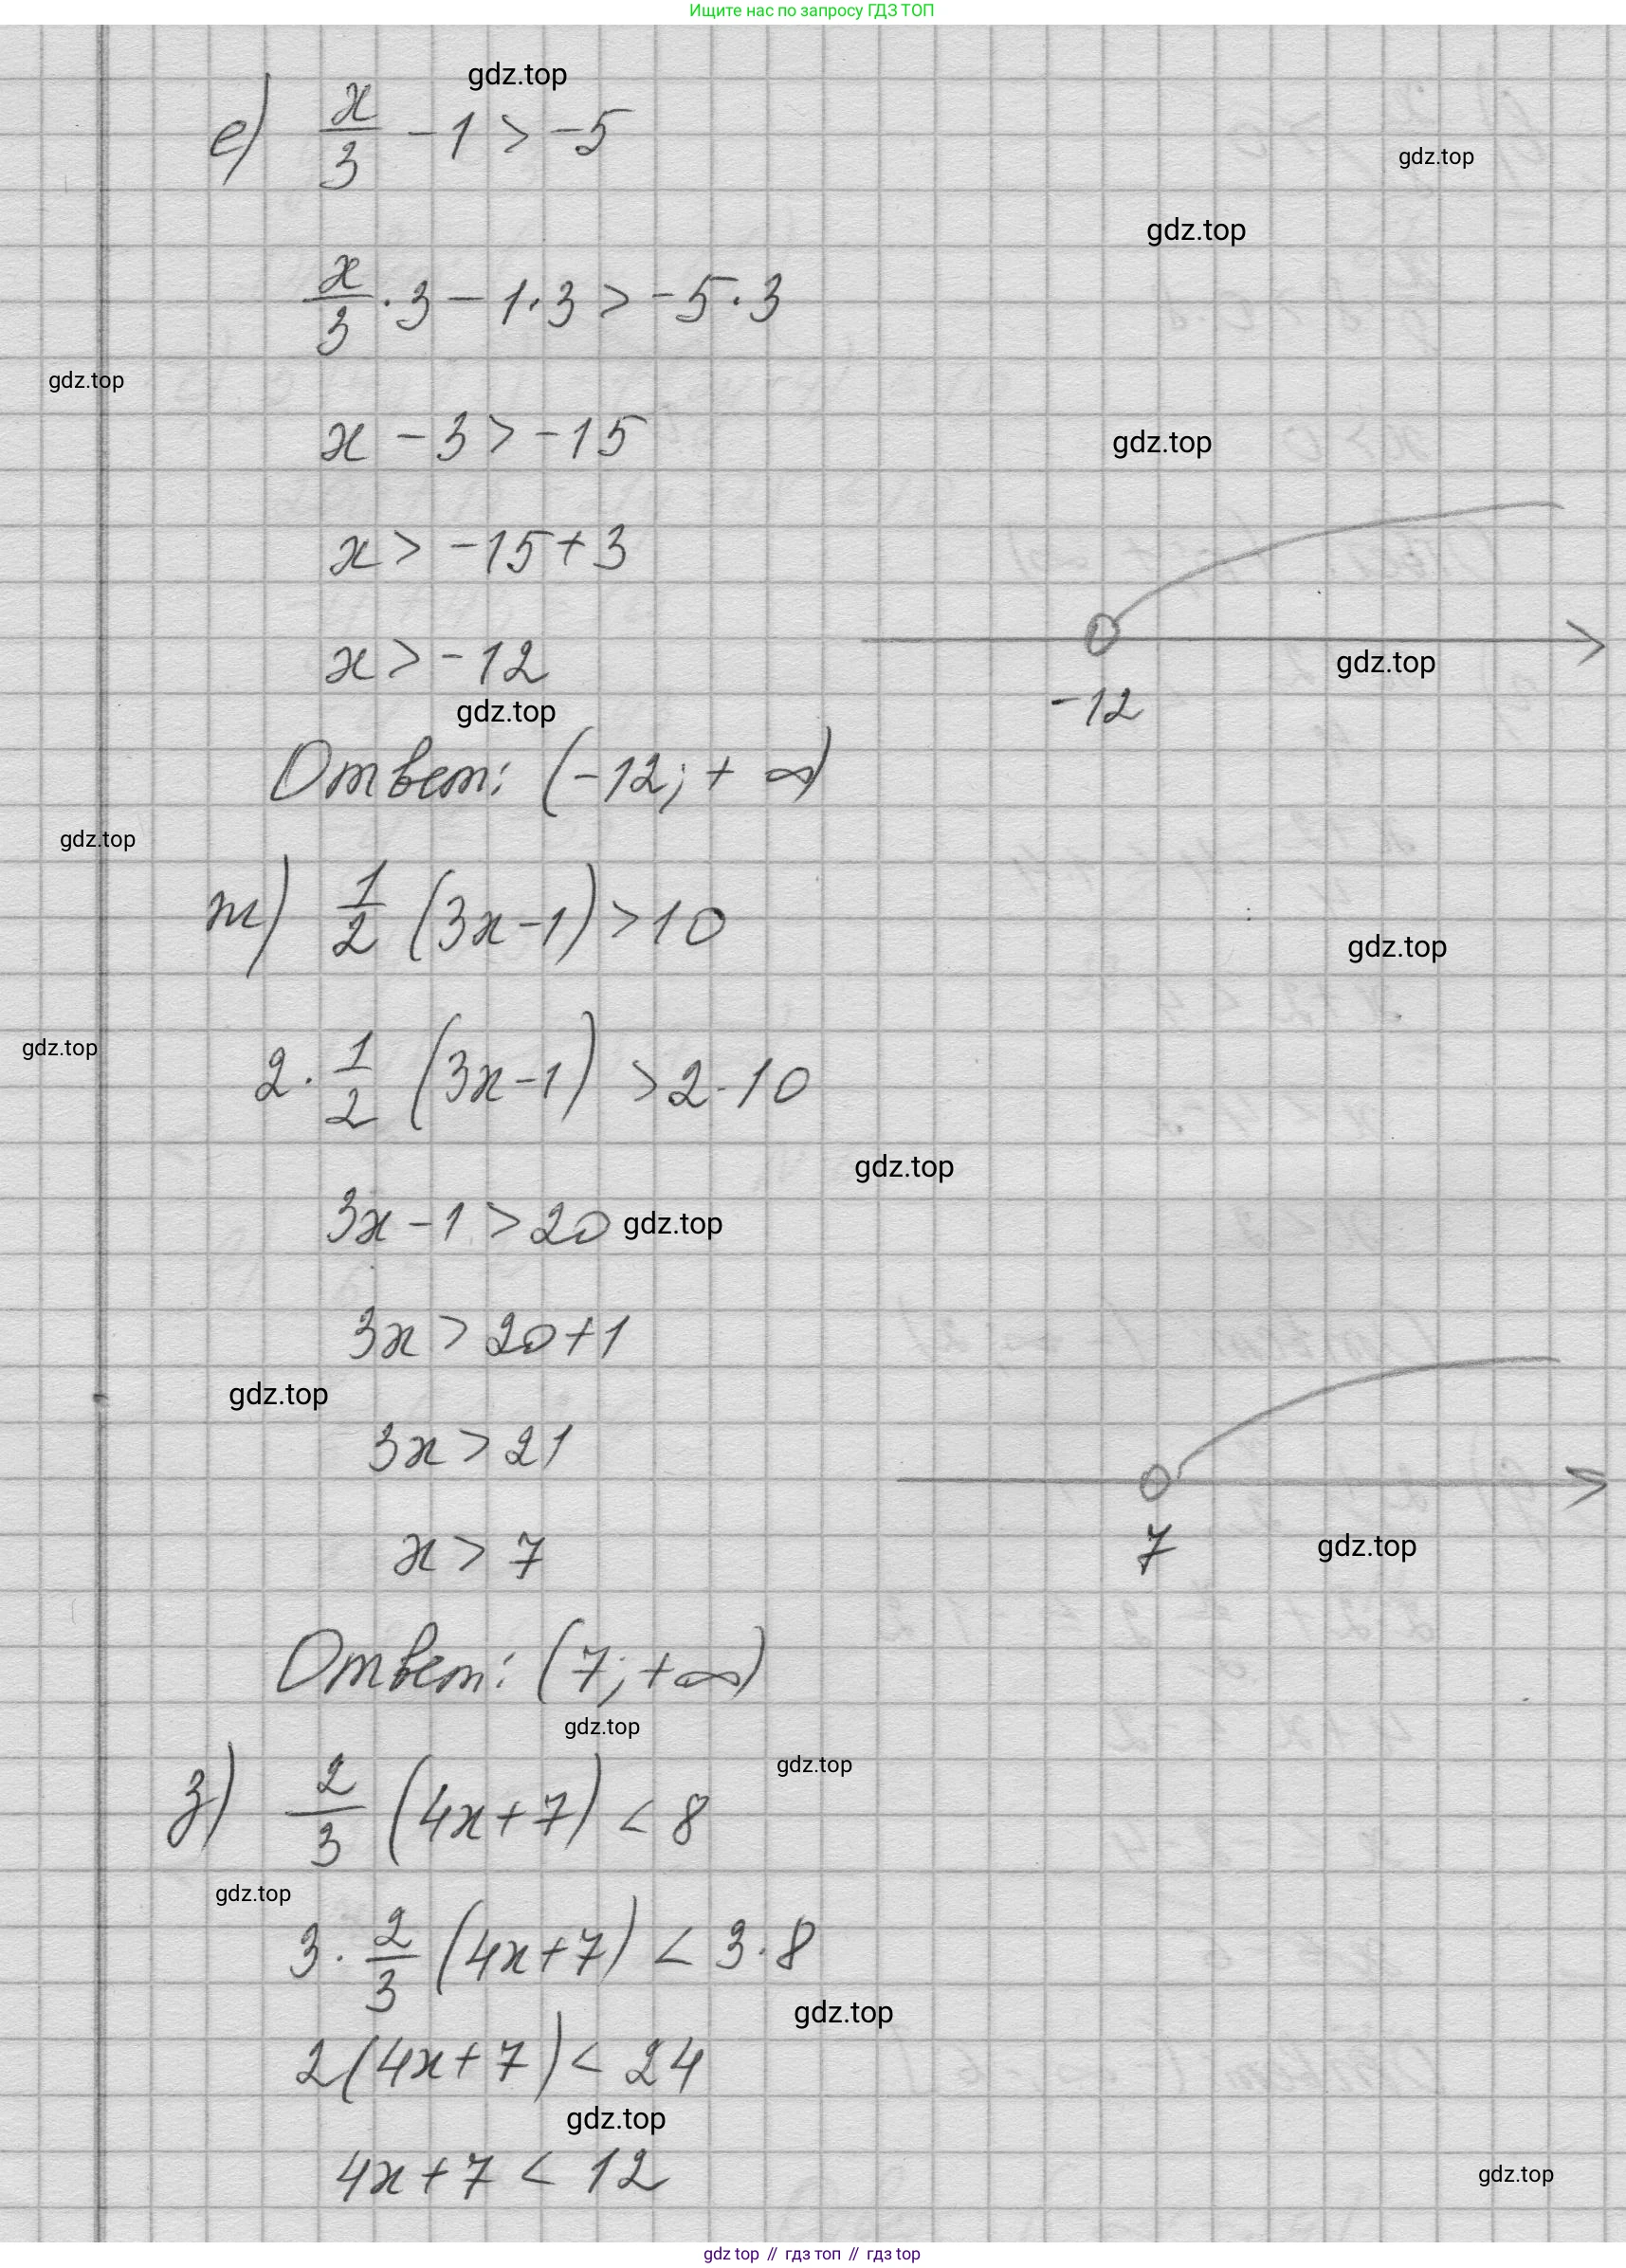 Ищите нас по запросу ГДЗ ТОП
gdz.top
е) x/3 - 1 > -5
gdz.top
gdz.top
x/3 · 3 - 1 · 3 > -5 · 3
gdz.top
x - 3 > -15
gdz.top
x > -15 + 3
x > -12
gdz.top
-12
gdz.top
Ответ: (-12; + ∞)
gdz.top
ж) 1/2 (3x - 1) > 10
gdz.top
gdz.top
2 · 1/2 (3x - 1) > 2 · 10
gdz.top
3x - 1 > 20
gdz.top
3x > 20 + 1
gdz.top
3x > 21
x > 7
7
gdz.top
Ответ: (7; + ∞)
gdz.top
gdz.top
з) 2/3 (4x + 7) < 8
gdz.top
3 · 2/3 (4x + 7) < 3 · 8
gdz.top
2(4x + 7) < 24
gdz.top
4x + 7 < 12
gdz.top
gdz top // гдз топ // гдз top